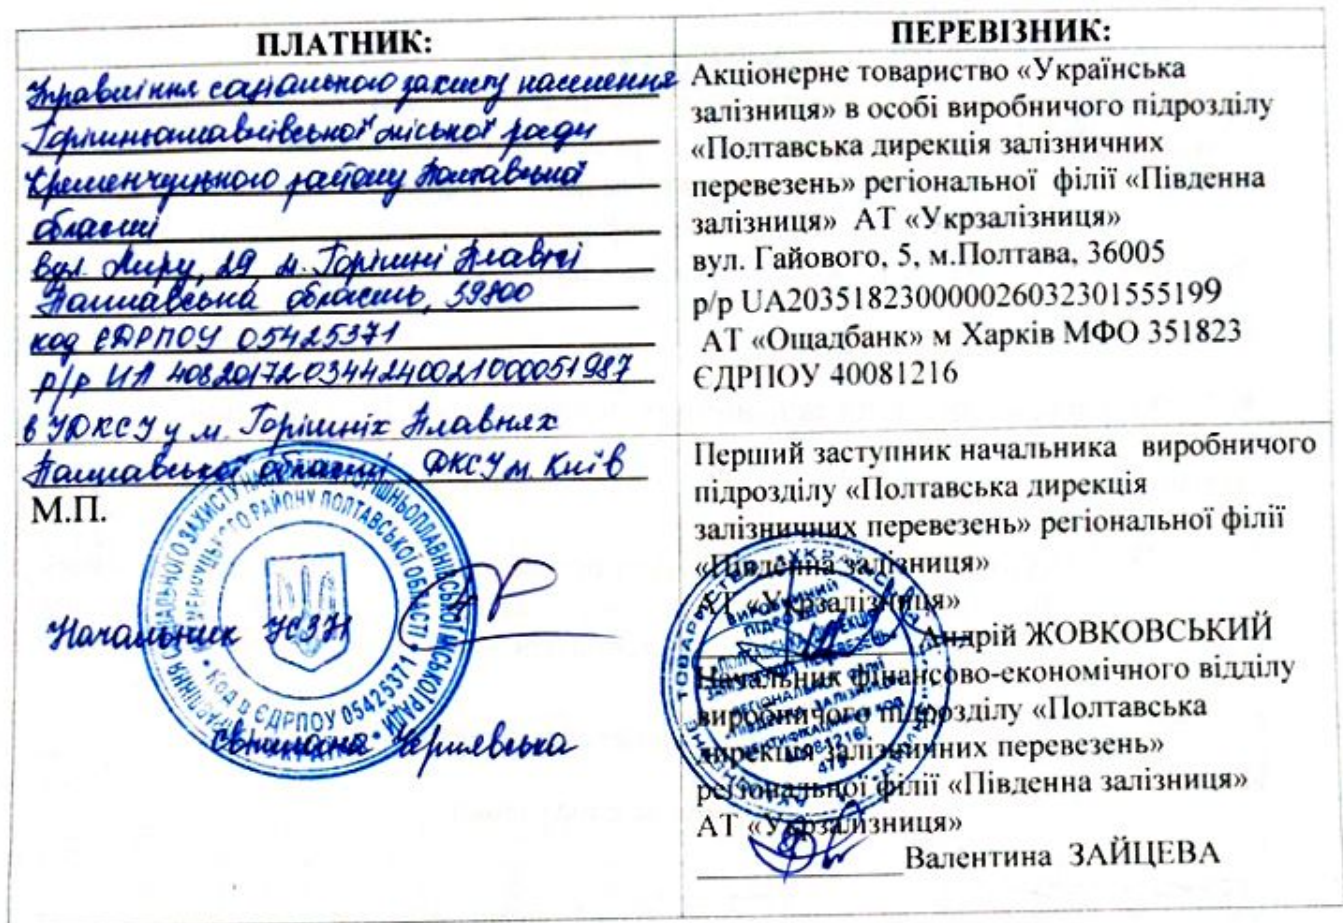 ПЛАТНИК:
Управління соціального захисту населення
Горішньоплавнівської міської ради
Кременчуцького району Полтавської
області
вул. Миру, 29, м. Горішні Плавні
Полтавська область, 39800
код ЄДРПОУ 05425371
р/р UA 408201720344240021000051987
в УДКСУ у м. Горішніх Плавнях
Полтавської області ДКСУ м. Київ
М.П.
Начальник УСЗН
Світлана Чернявська
КОД В ЄДРПОУ 05425371
ПЕРЕВІЗНИК:
Акціонерне товариство «Українська
залізниця» в особі виробничого підрозділу
«Полтавська дирекція залізничних
перевезень» регіональної філії «Південна
залізниця» АТ «Укрзалізниця»
вул. Гайового, 5, м.Полтава, 36005
р/р UA203518230000026032301555199
АТ «Ощадбанк» м Харків МФО 351823
ЄДРПОУ 40081216
Перший заступник начальника виробничого
підрозділу «Полтавська дирекція
залізничних перевезень» регіональної філії
«Південна залізниця»
АТ «Укрзалізниця»
Андрій ЖОВКОВСЬКИЙ
Начальник фінансово-економічного відділу
виробничого підрозділу «Полтавська
дирекція залізничних перевезень»
регіональної філії «Південна залізниця»
АТ «Укрзалізниця»
Валентина ЗАЙЦЕВА